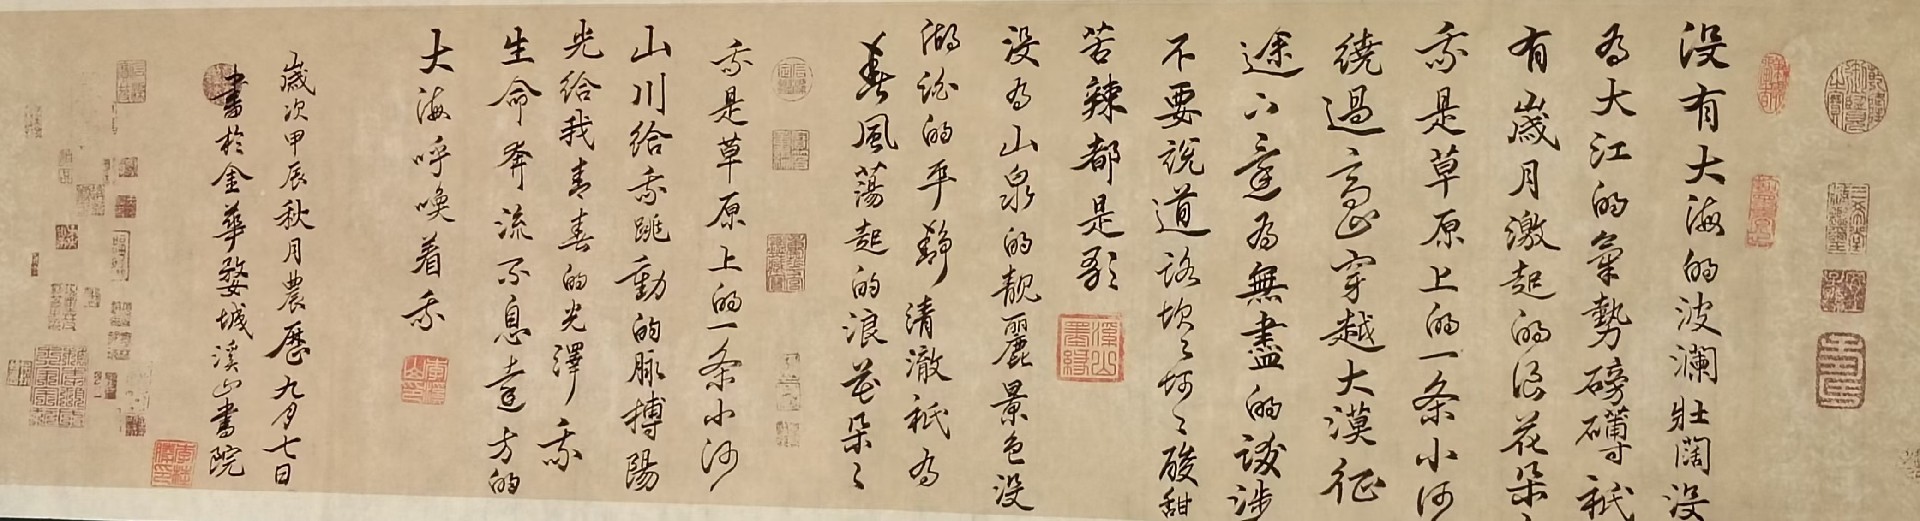 没有大海的波澜壯闊没
為大江的氣勢磅礴祇
有歲月激起的浪花朵
我是草原上的一条小河
繞過高山穿越大漠征
途下達為無盡的跋涉
不要說道路坎〻坷〻酸甜
苦辣都是歌
没為山泉的靚麗景色没
湖泊的平靜清澈祇為
春風蕩起的浪花朵〻
我是草原上的一条小河
山川給我跳動的脉搏陽
光給我青春的光澤我
生命奔流不息遠方的
大海呼喚着我
歲次甲辰秋月農歷九月七日
書於金華婺城溪山書院